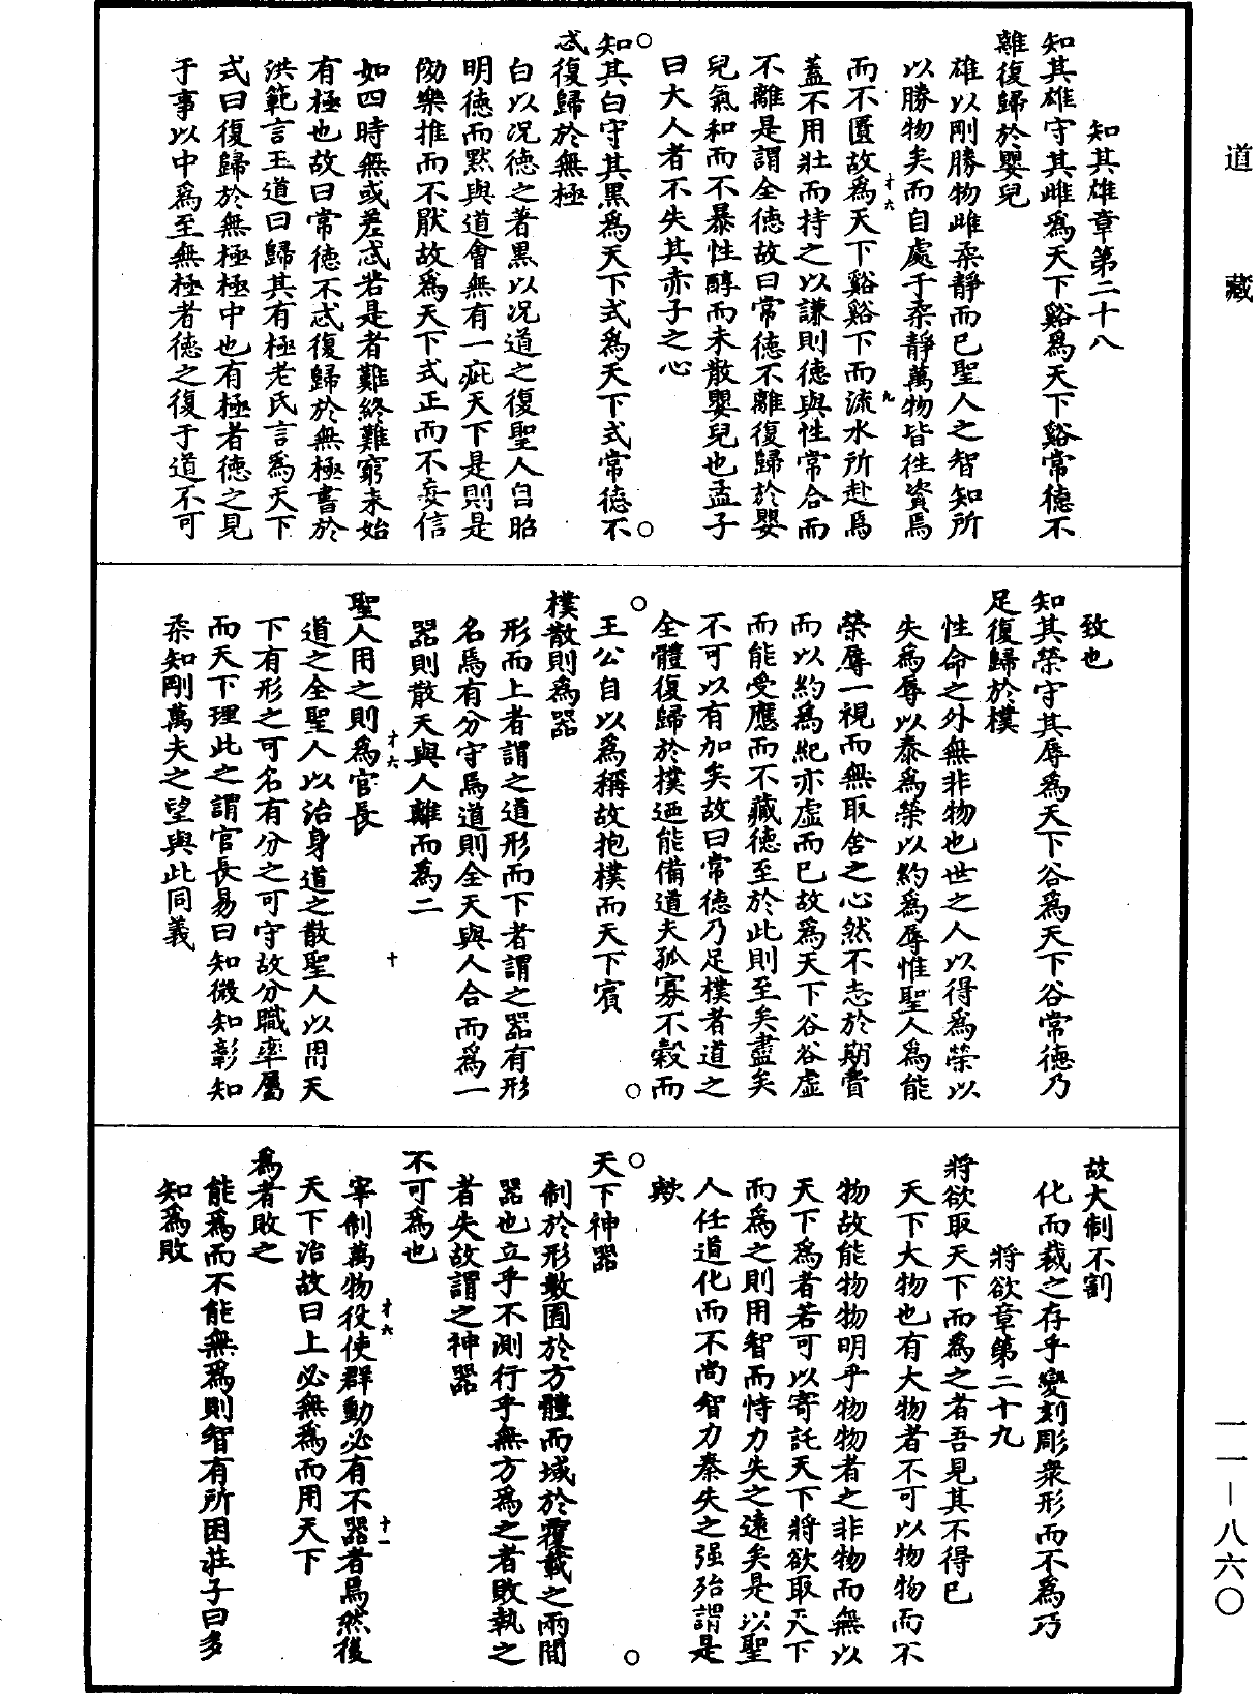 道藏
知其雄章第二十八
知其雄守其雌為天下谿為天下谿常德不
離復歸於嬰兒
雄以剛勝物雌柔靜而已聖人之智知所
以勝物矣而自處于柔靜萬物皆往資焉
而不匱故為天下谿谿下而流水所赴焉
蓋不用壯而持之以謙則德與性常合而
不離是謂全德故曰常德不離復歸於嬰
兒氣和而不暴性醇而未散嬰兒也孟子
曰大人者不失其赤子之心
知其白守其黑為天下式為天下式常德不
忒復歸於無極
白以况德之著黑以况道之復聖人自昭
明德而默與道會無有一疵天下是則是
傚樂推而不厭故為天下式正而不妄信
如四時無或差忒若是者難終難窮未始
有極也故曰常德不忒復歸於無極書於
洪範言王道曰歸其有極老氏言為天下
式曰復歸於無極極中也有極者德之見
于事以中為至無極者德之復于道不可
致也
知其榮守其辱為天下谷為天下谷常德乃
足復歸於樸
性命之外無非物也世之人以得為榮以
失為辱以泰為榮以約為辱惟聖人為能
榮辱一視而無取舍之心然不志於期費
而以約為紀亦虛而已故為天下谷谷虛
而能受應而不藏德至於此則至矣盡矣
不可以有加矣故曰常德乃足樸者道之
全體復歸於樸迺能備道夫孤寡不穀而
王公自以為稱故抱樸而天下賓
樸散則為器
形而上者謂之道形而下者謂之器有形
名焉有分守焉道則全天與人合而為一
器則散天與人離而為二
聖人用之則為官長
道之全聖人以治身道之散聖人以用天
下有形之可名有分之可守故分職率屬
而天下理此之謂官長易曰知微知彰知
柔知剛萬夫之望與此同義
故大制不割
化而裁之存乎變刻彫衆形而不為巧
將欲章第二十九
將欲取天下而為之者吾見其不得已
天下大物也有大物者不可以物物而不
物故能物物明乎物物者之非物而無以
天下為者若可以寄託天下將欲取天下
而為之則用智而恃力失之遠矣是以聖
人任道化而不尚智力秦失之强殆謂是
歟
天下神器
制於形數囿於方體而域於覆載之兩間
器也立乎不測行乎無方為之者敗執之
者失故謂之神器
不可為也
宰制萬物役使群動必有不器者焉然後
天下治故曰上必無為而用天下
為者敗之
能為而不能無為則智有所困莊子曰多
知為敗
才六
九
才六
十
才六
十一
一一—八六〇